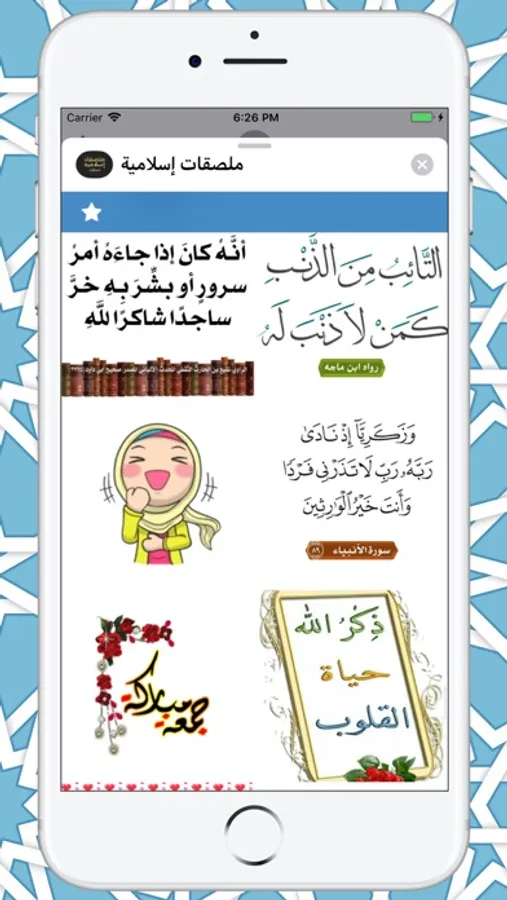 Carrier 6:26 PM
ملصقات إسلامية
ملصقات إسلامية
أنَّهُ كانَ إذا جاءَهُ أمرُ
سرورٍ أو بشِّرَ بِهِ خرَّ
ساجدًا شاكرًا للَّهِ
التَّائِبُ مِنَ الذَّنْبِ
كَمَنْ لاَ ذَنْبَ لَهُ
رواه ابن ماجه
وَزَكَرِيَّآ إِذْ نَادَىٰ
رَبَّهُۥ رَبِّ لَا تَذَرْنِي فَرْدًا
وَأَنتَ خَيْرُ ٱلْوَارِثِينَ
سورة الأنبياء ٨٩
جمعة مباركة
ذِكْرُ الله
حياة
القلوب